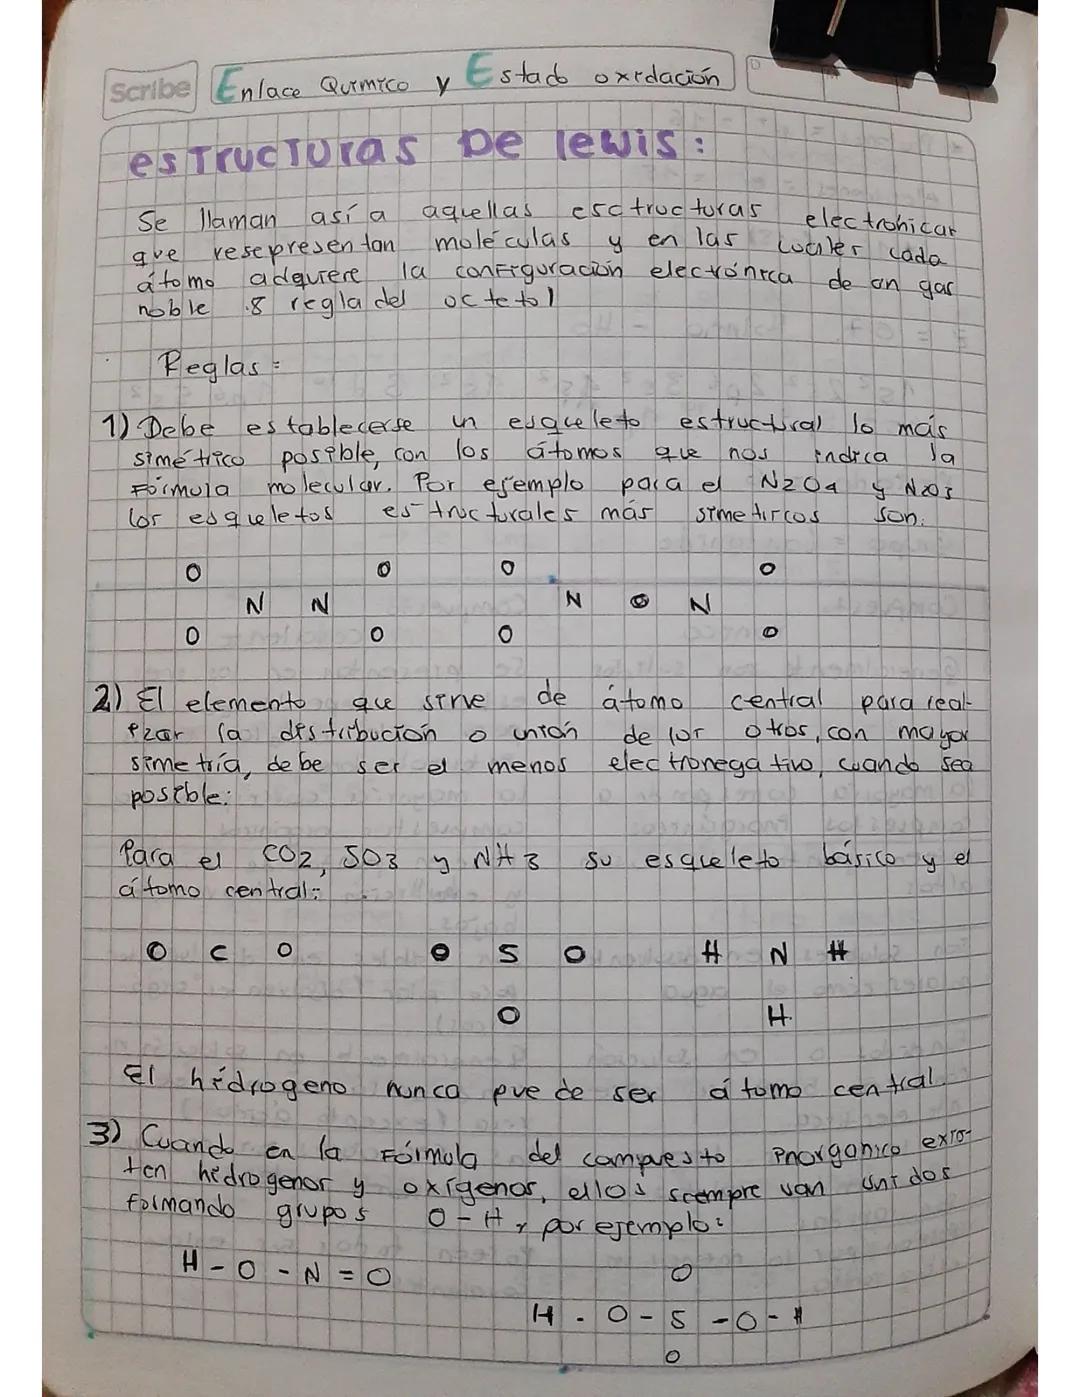 Scribe Enlace Químico y Estado oxidación
estructuras De lewis:
Se llaman así a aquellas esctructuras electronicar
que resepresentan moléculas y en las cuales cada
átomo adquiere la configuración electrónica de un gas
noble .8 regla del octeto)
Reglas:
1) Debe establecerse un esqueleto estructural lo más
simétrico posible, con los átomos que nos indica la
Fórmula molecular. Por ejemplo para el N2O4 y N2O5
los esqueletos estructurales más simetircos son:
O O O O
N N N O N
O O O O
2) El elemento que sirve de átomo central para real-
izar la distribución o unión de los otros, con mayor
simetría, debe ser el menos electronegativo, cuando sea
posible:
Para el CO2, SO3 y NH3 su esqueleto básico y el
átomo central:
O C O O S O H N H
O H.
El hidrogeno nunca puede ser átomo central
3) Cuando en la Fórmula del compuesto inorganico exis-
ten hidrogenos y oxígenos, ellos siempre van unidos
formando grupos O-H, por ejemplo:
H-O-N=O O
H-O-S-O-H
O